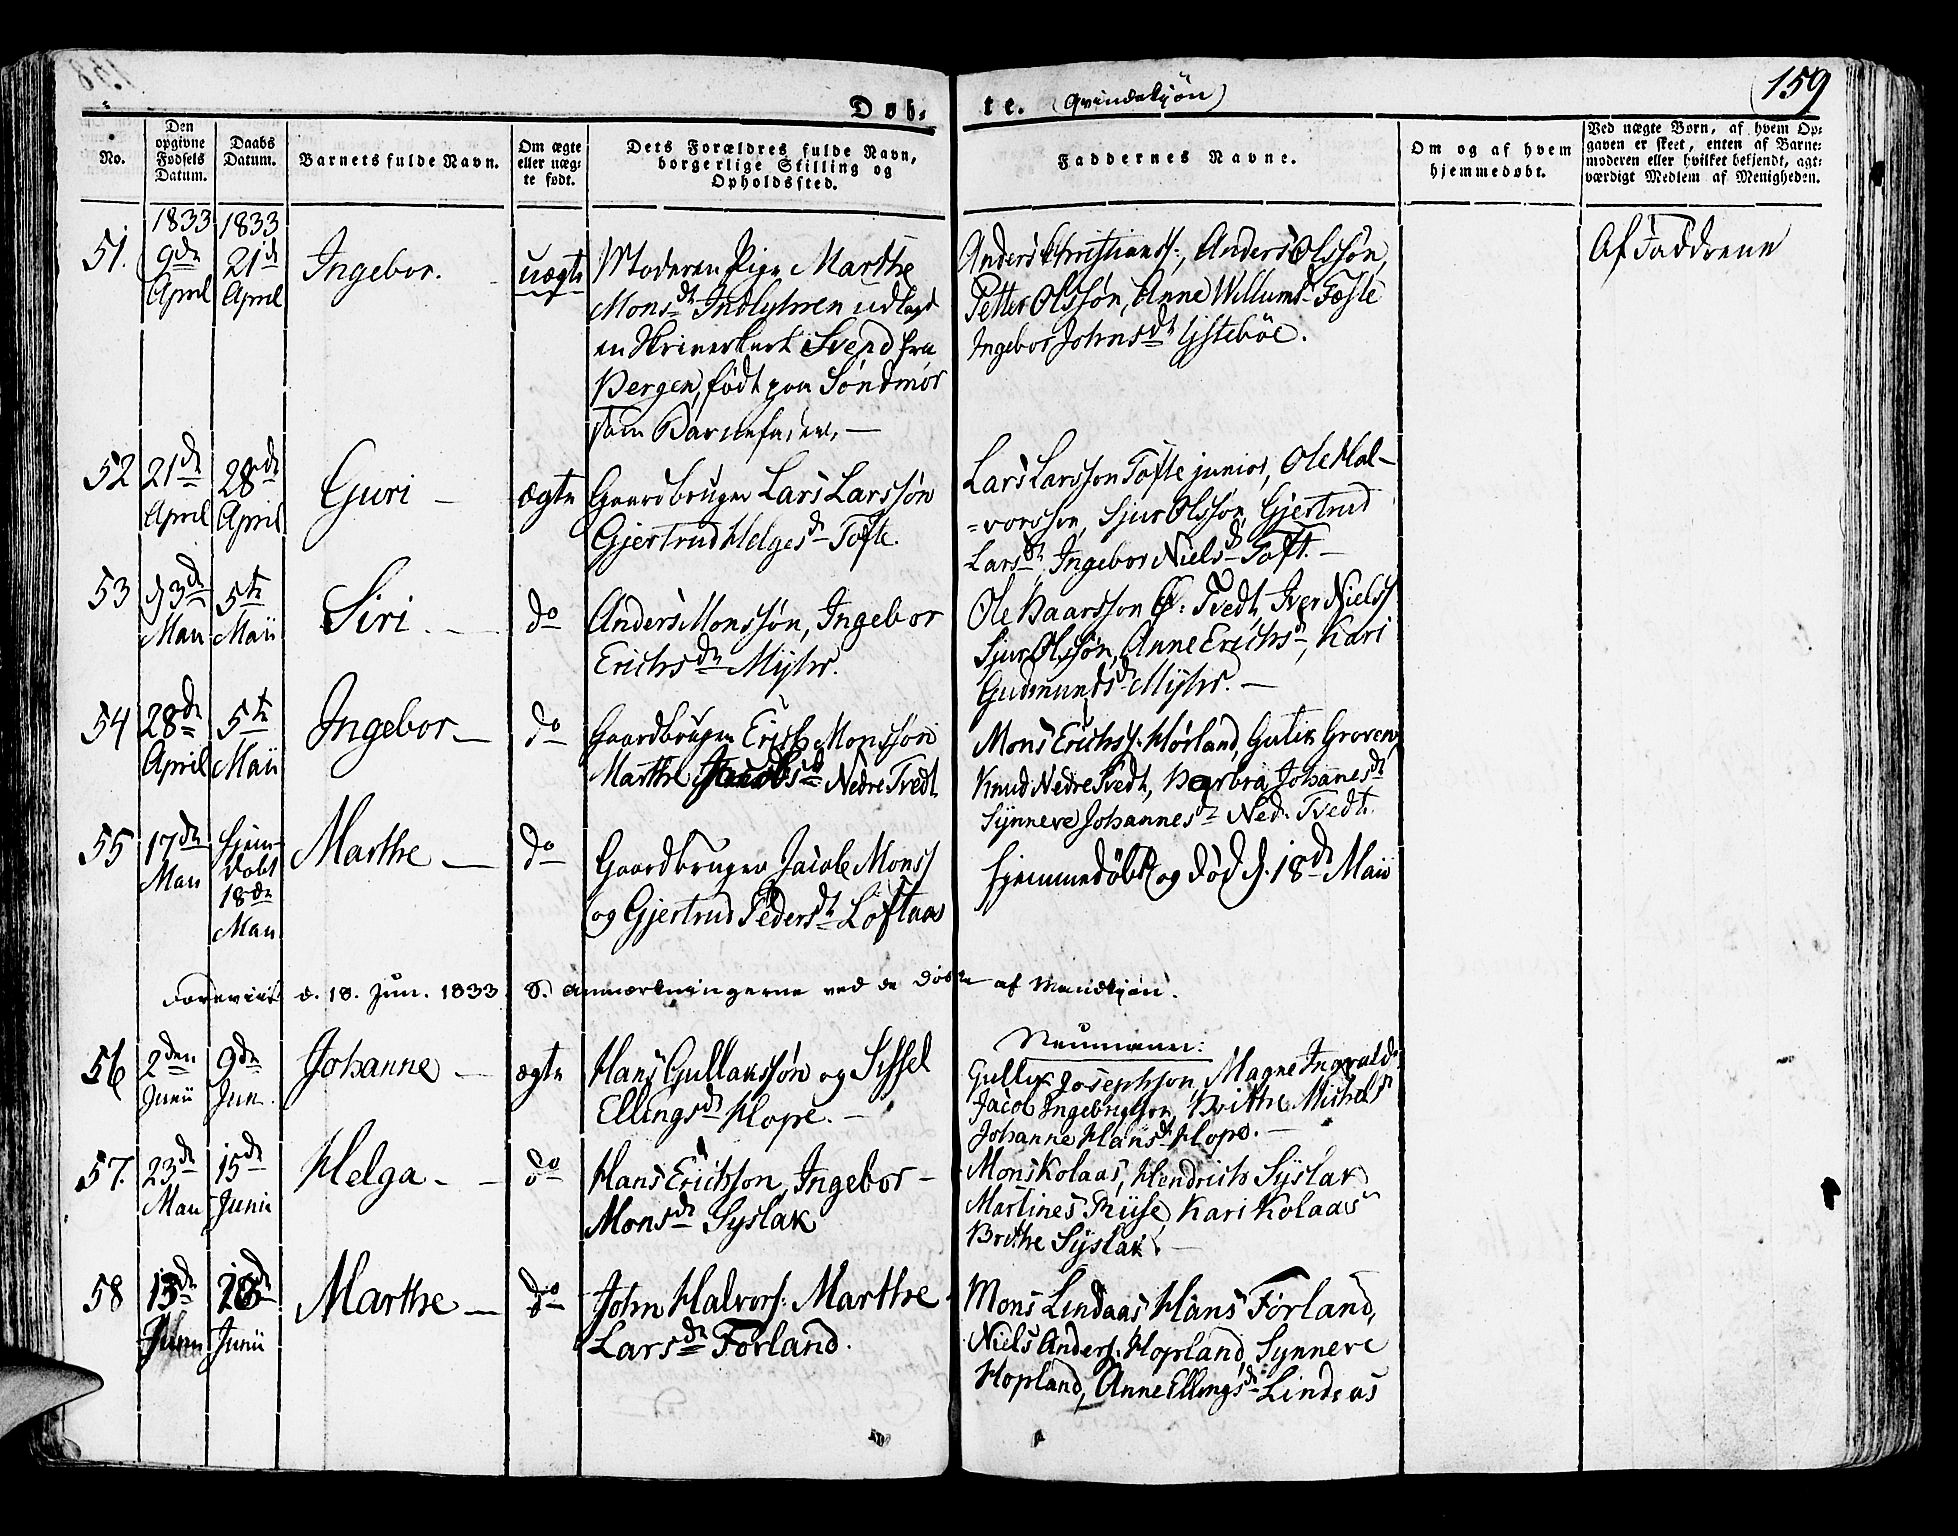 159
Døb- te. (Qvindekjøn)
No.
Den opgivne Fødsels Datum.
Daabs Datum.
Barnets fulde Navn.
Om ægte eller uæg- te født.
Dets Forældres fulde Navn, borgerlige Stilling og Opholdssted.
Faddernes Navne.
Om og af hvem hjemmedøbt.
Ved uægte Børn, af hvem Op- gaven er skeet, enten af Barne- moderen eller hvilket bekjendt, agt- værdigt Medlem af Menigheden.
1833 1833
51. 9de April
21de April
Ingebor.
uægte
Moderen Pige Marthe
Monsdr
udlagt
Svend fra
Bergen, født paa Søndmør
som Barnefader. —
Anders Christianss:, Anders Olssøn,
Petter Olssøn, Anne Willumsd Tofte
Ingebor Johnsdr
Af Faddrene
52 21de April
28de April
Guri —
ægte
Gaardbruger Lars Larssøn
Gjertrud Helgesd Tofte.
Lars Larsson Tofte junior, Ole Hal-
=vorsson, Sjur Olssøn, Gjertrud
Larsdr, Ingebor Nielsd Toft. —
53 d 3de Maii
5te Maii
Siri. —
do
Anders Monssøn, Ingebor
Erichsdr Myhr.
Ole Baarsson Ø: Tvedt, Iver Nielss
Sjur Olssøn, Anne Erichsd, Kari
Gudmundsd Myhr. —
54 28de April
5te Maii
Ingebor —
do
Gaardbruger Erich Monssøn
Marthe Jacobsd Nedre Tvedt
Mons Erichss. Hørland, Gutik Groven
Knud Nedre Tvedt, Barbra Johanesdr
Synneve Johannesd Ned. Tvedt.
55 17de Maii
Hjem- døbt 18de Maii
Marthe —
do
Gaardbruger Jacob Monss
og Gjertrud Pedersdr Løftaas
Hjemmedøbt og død d. 18de Maii
Foreviist d. 18. Jun. 1833 S. Anmærkningerne ved de døbte af Mandkjøn.
Neumann.
56 2den Junii
9de Jun.
Johanne —
ægte
Hans Gullakssøn og Sissel
Ellingsdr Hope. —
Gullik Josephson, Magne Ingvald
Jacob Ingebrigtson, Brithe Michelsd
Johanne Hansd Hope. —
57. 23de Maii
15de Junii
Helga —
do
Hans Erichson, Ingebor —
Monsdr Syslak
Mons Kolaas, Hendrich Syslak
Martines Kari Kolaas
Brithe Syslak. —
58 13de Junii
Junii
Marthe —
do
John Halvors. Marthe
Larsdr Førland.
Mons Lindaas Hans Førland,
Niels Anders. Hopland, Synneve
Hopland, Anne Ellingsd Lindaas